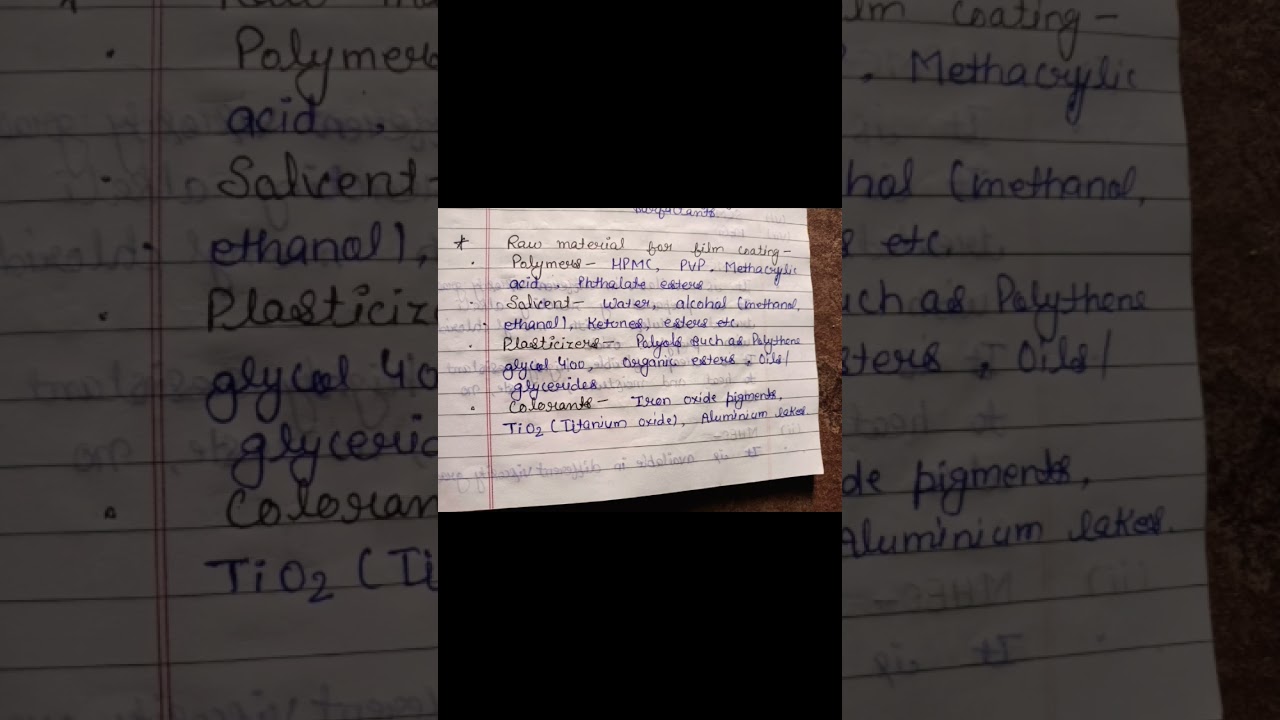 surfactants.
* Raw material for film coating -
· Polymers - HPMC, PVP. Methacrylic
acid, Phthalate esters
· Salivent - Water, alcohol (methanol,
ethanol), Ketones, esters etc.
· Plasticizers - Polyols such as Polythene
glycol 400, Organic esters, Oils/
glycerides
· Colorants - Iron oxide pigments,
TiO2 (Titanium oxide), Aluminium lakes.